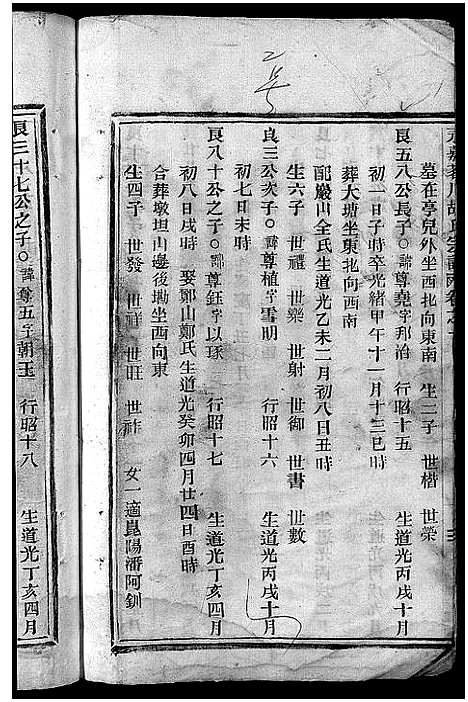 墓在亭兒外坐西北向東南 生二子 世楷 世榮
良五八公長子○諱尊堯字邦治 行昭十五 生道光丙戌十月
初一日子時卒光緒甲午十一月十三巳時
葬大塘坐東北向西南
配巖山全氏生道光乙未二月初八日丑時
生六子 世禮 世樂 世射 世御 世書 世數
良三公次子○諱尊植字雪明 行昭十六 生道光丙戌十月
初七日未時
良八十公之子○諱尊鈺字以琢 行昭十七 生道光丁亥四月
初八日戌時 娶鄭山鄭氏生道光癸卯四月廿四日酉時
合葬墩坦山邊後坳坐西向東
生四子 世發 世旺 世祚 女一適崑陽潘阿釧
良三十七公之子○諱尊五字朝玉 行昭十八 生道光丁亥四月